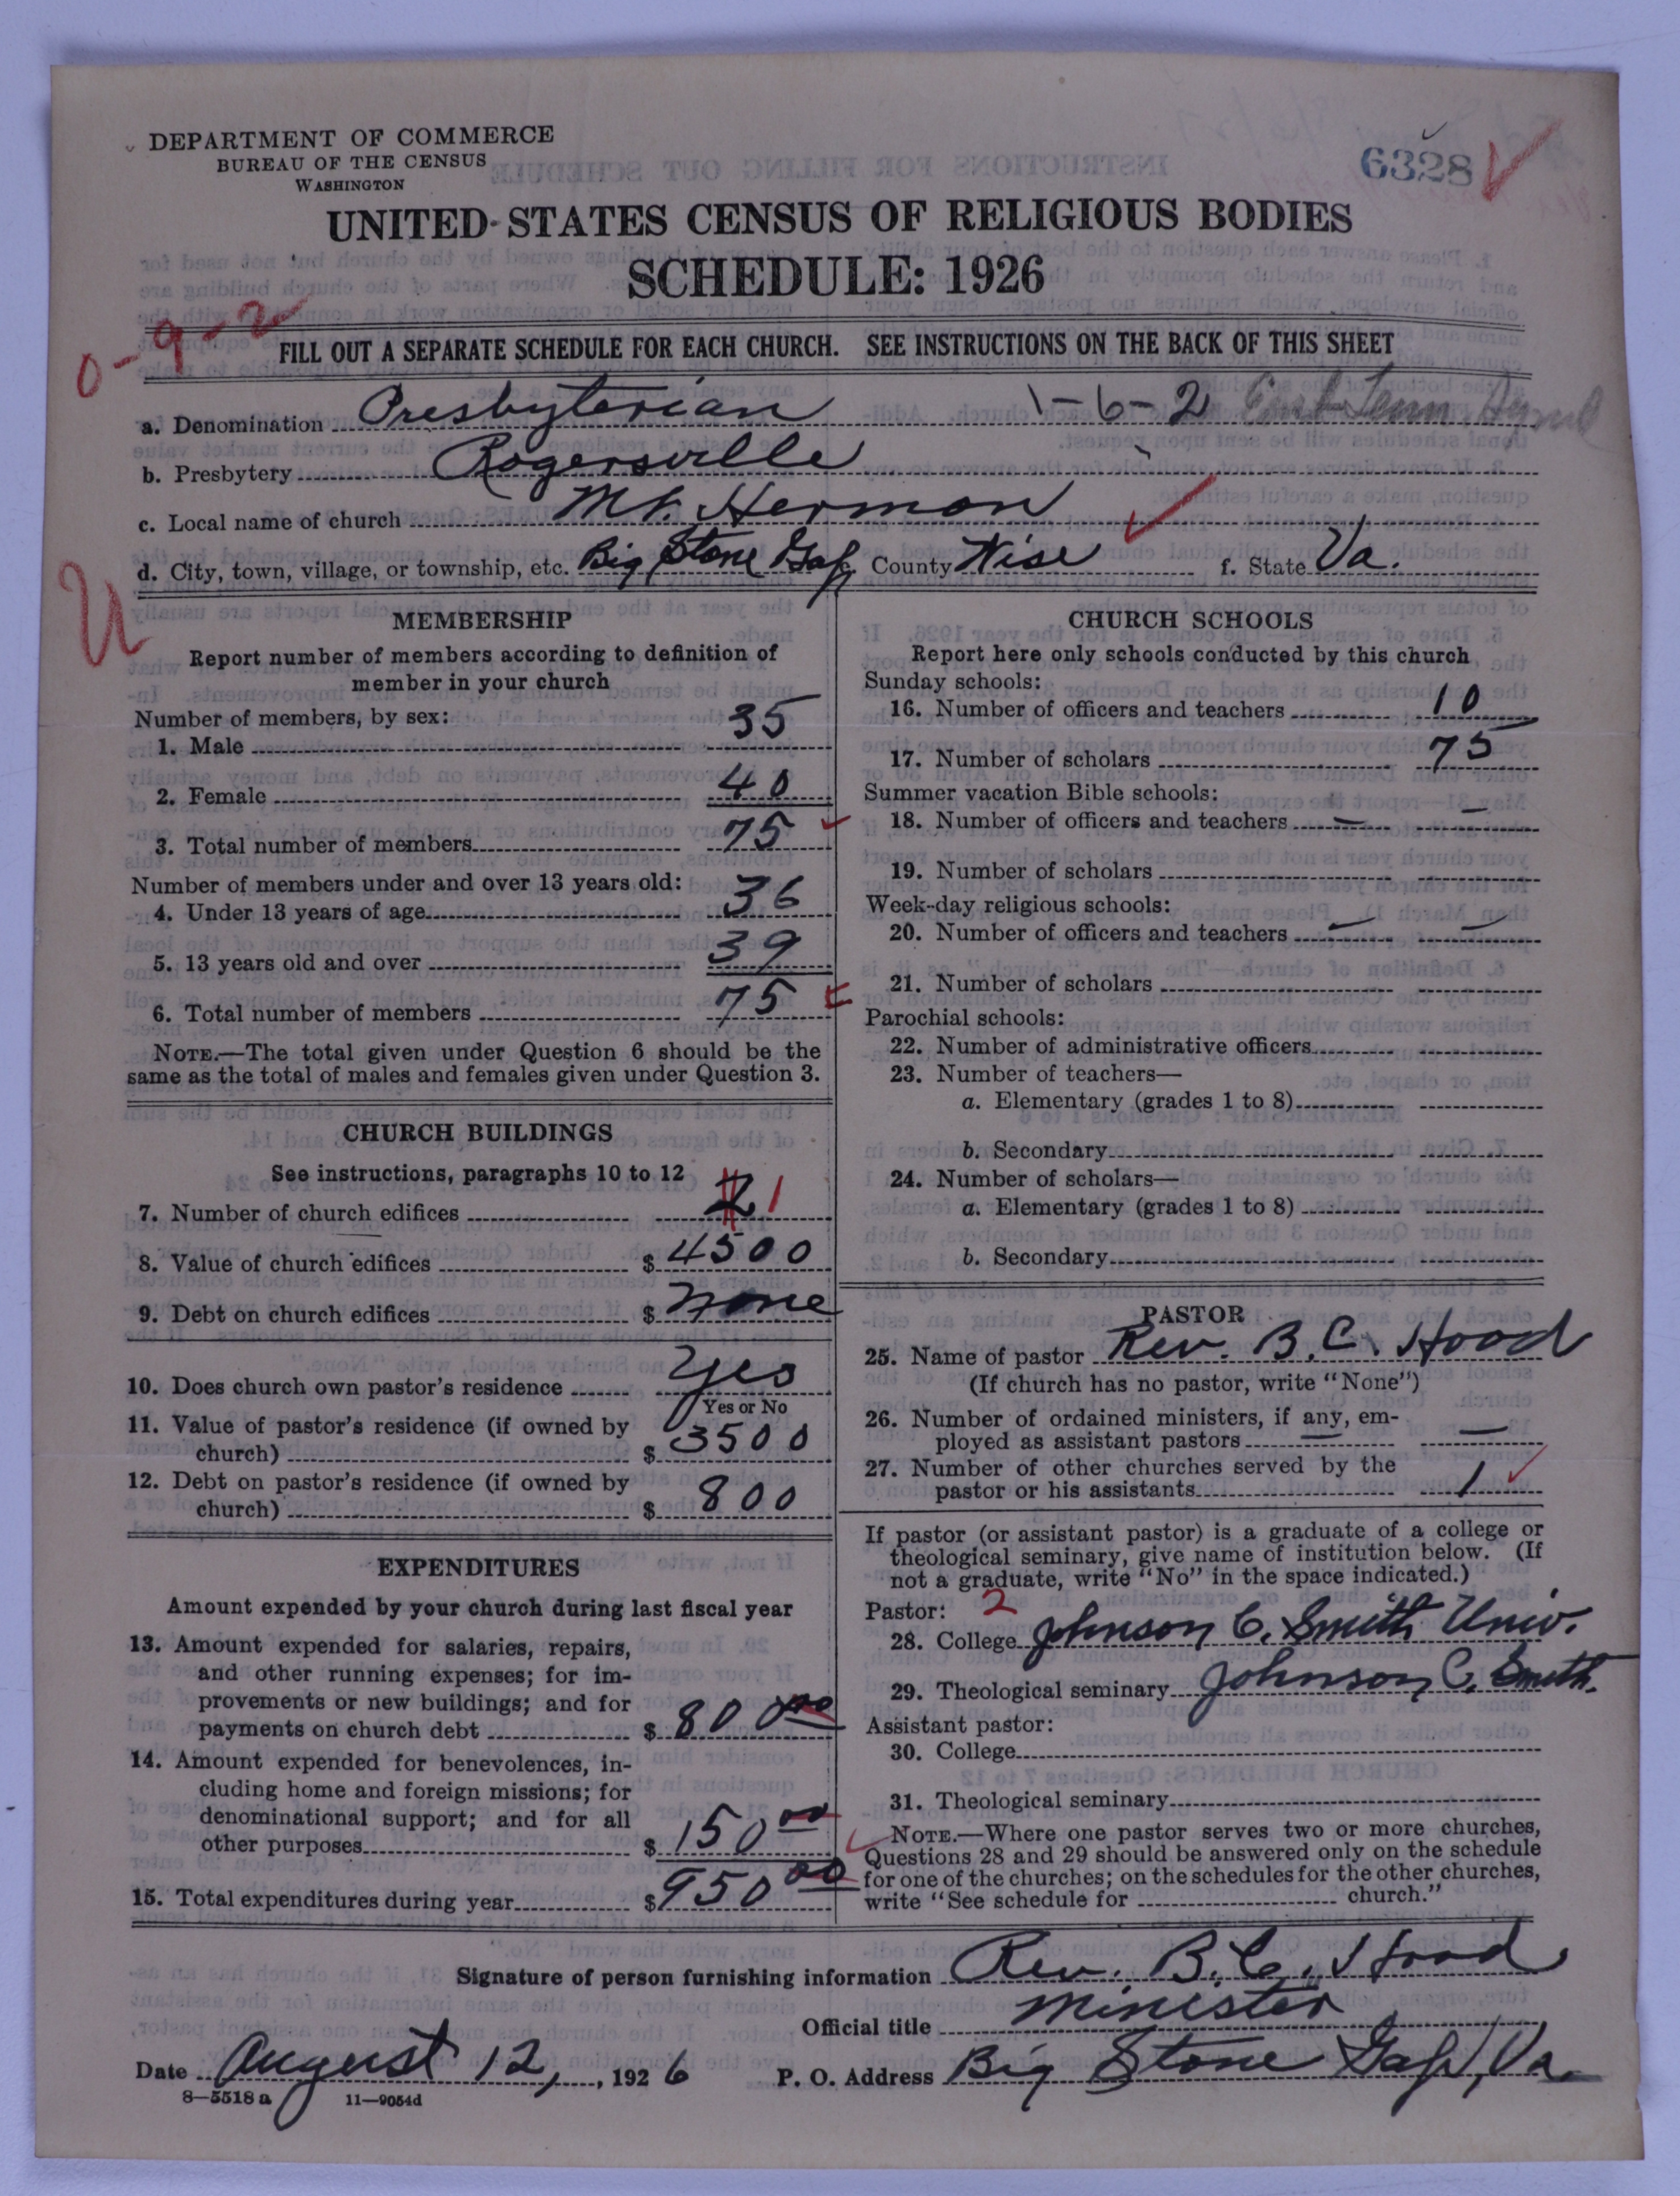 DEPARTMENT OF COMMERCE
BUREAU OF THE CENSUS
WASHINGTON
6328
UNITED STATES CENSUS OF RELIGIOUS BODIES
SCHEDULE: 1926
0-9-2
FILL OUT A SEPARATE SCHEDULE FOR EACH CHURCH. SEE INSTRUCTIONS ON THE BACK OF THIS SHEET
a. Denomination Presbyterian 1-6-2 East Tenn.
b. Presbytery Rogersville
c. Local name of church Mt. Hermon
d. City, town, village, or township, etc. Big Stone Gap County Wise f. State Va.
U
MEMBERSHIP
Report number of members according to definition of
member in your church
Number of members, by sex:
1. Male 35
2. Female 40
3. Total number of members 75
Number of members under and over 13 years old:
4. Under 13 years of age 36
5. 13 years old and over 39
6. Total number of members 75
NOTE.—The total given under Question 6 should be the
same as the total of males and females given under Question 3.
CHURCH BUILDINGS
See instructions, paragraphs 10 to 12
7. Number of church edifices 2 1
8. Value of church edifices $ 4500
9. Debt on church edifices $ none
10. Does church own pastor's residence yes
Yes or No
11. Value of pastor's residence (if owned by
church) $ 3500
12. Debt on pastor's residence (if owned by
church) $ 800
EXPENDITURES
Amount expended by your church during last fiscal year
13. Amount expended for salaries, repairs,
and other running expenses; for im-
provements or new buildings; and for
payments on church debt $ 800 00
14. Amount expended for benevolences, in-
cluding home and foreign missions; for
denominational support; and for all
other purposes $ 150 00
15. Total expenditures during year $ 950 00
CHURCH SCHOOLS
Report here only schools conducted by this church
Sunday schools:
16. Number of officers and teachers 10
17. Number of scholars 75
Summer vacation Bible schools:
18. Number of officers and teachers — —
19. Number of scholars
Week-day religious schools:
20. Number of officers and teachers — —
21. Number of scholars
Parochial schools:
22. Number of administrative officers
23. Number of teachers—
a. Elementary (grades 1 to 8)
b. Secondary
24. Number of scholars—
a. Elementary (grades 1 to 8)
b. Secondary
PASTOR
25. Name of pastor Rev. B. C. Hood
(If church has no pastor, write "None")
26. Number of ordained ministers, if any, em-
ployed as assistant pastors — —
27. Number of other churches served by the
pastor or his assistants 1
If pastor (or assistant pastor) is a graduate of a college or
theological seminary, give name of institution below. (If
not a graduate, write "No" in the space indicated.)
Pastor: 2
28. College Johnson C. Smith Univ.
29. Theological seminary Johnson C. Smith.
Assistant pastor:
30. College
31. Theological seminary
NOTE.—Where one pastor serves two or more churches,
Questions 28 and 29 should be answered only on the schedule
for one of the churches; on the schedules for the other churches,
write "See schedule for church."
Signature of person furnishing information Rev. B. C. Hood
Official title Minister
Date August 12, , 1926 P. O. Address Big Stone Gap, Va.
8—5518 a 11—9054d